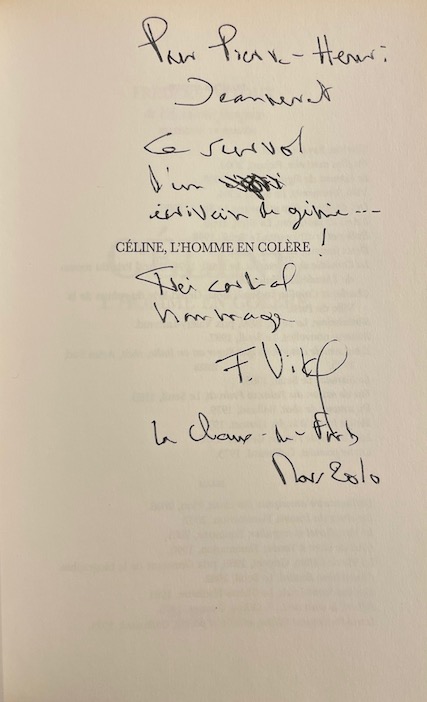 Pour Pierre-Henri
Jeanneret
Ce survol
d'un
écrivain de génie...
CÉLINE, L'HOMME EN COLÈRE !
Très cordial
hommage
F. Vit
La Chaux-de-Fonds
Mars 2010